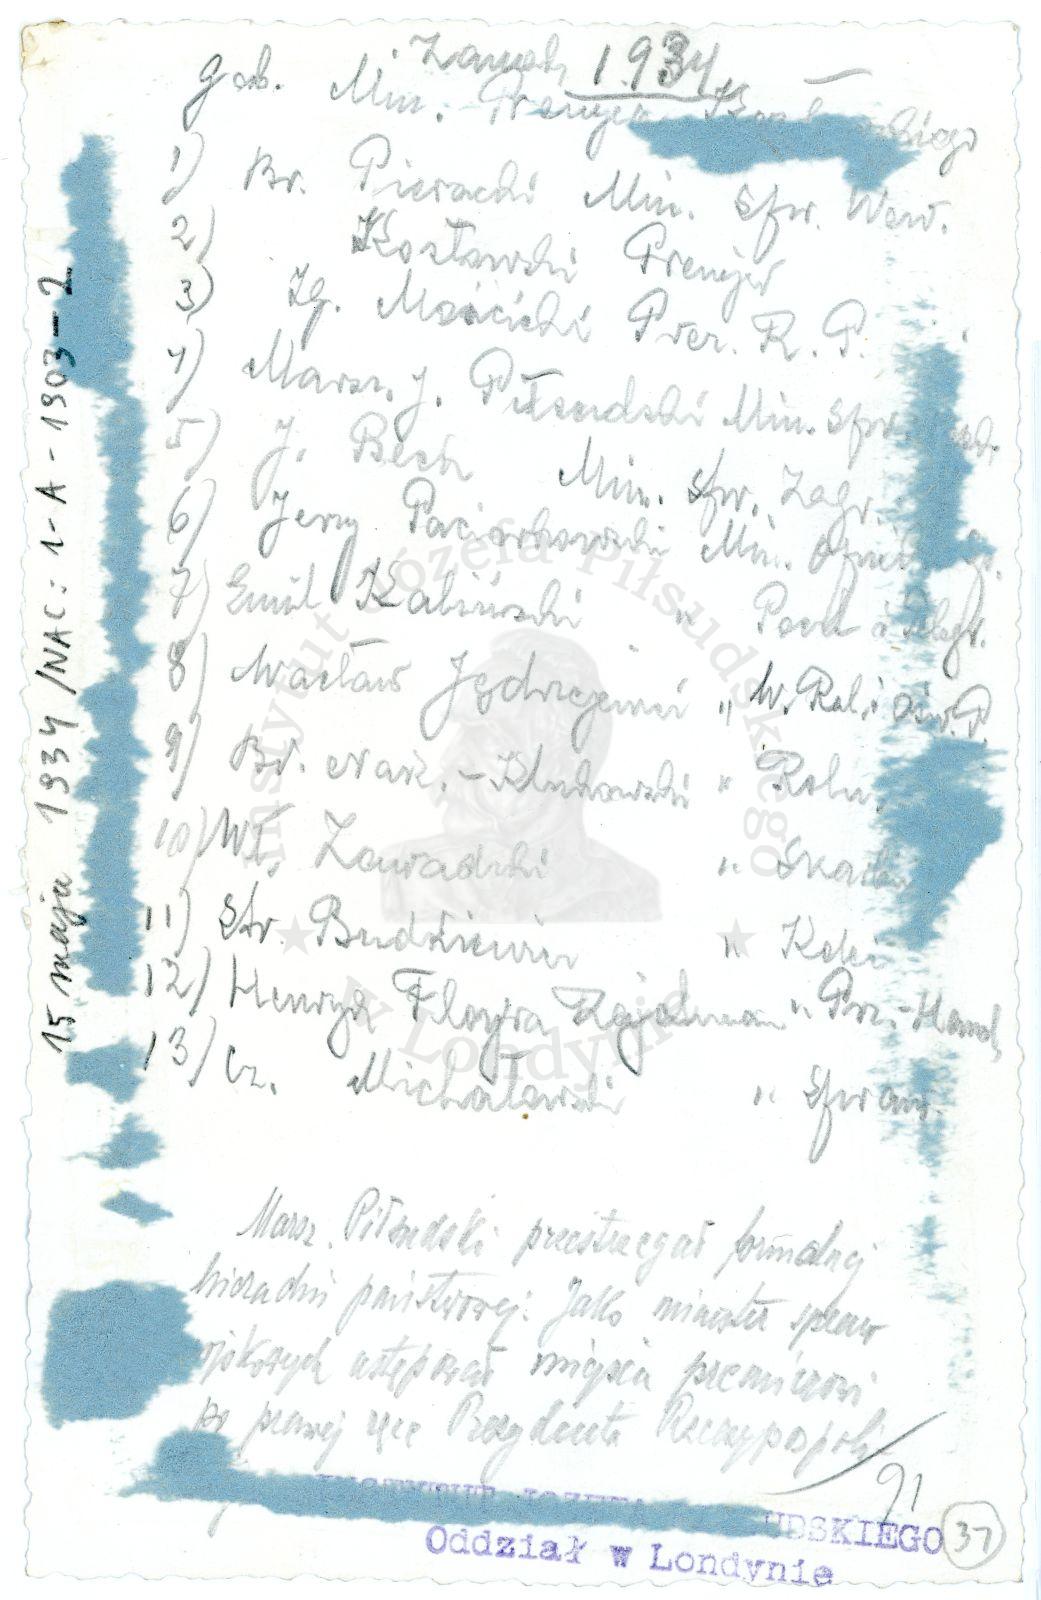 Zamek 1934
gab. Min. Premjera
1) Br. Pieracki Min. Spr. Wew.
2) Kozłowski Premjer
3) Ig. Mościcki Prez. R. P.
4) Marsz. J. Piłsudski Min. Spr.
5) J. Beck Min. Spr. Zagr.
6) Jerzy Paciorkowski Min.
7) Emil Kaliński " Poczt i Telegr.
8) Wacław Jędrzejewicz " W. Rel. i Ośw. P.
9) Br. Nak. - Klukowski " Roln.
10) Wł. Zawadzki " Skarbu
11) St. Budkiewicz " Kolei
12) Henryk Floyar Rajchman " Prz. - Handl.
13) Cz. Michałowski " Spraw.
Marsz. Piłsudski przestrzegał formalnej
hierarchii państwowej. Jako minister spraw
wojskowych ustępował miejsca premierowi
po prawej ręce Prezydenta Rzeczypospolit.
91
INSTYTUT JÓZEFA PIŁSUDSKIEGO
Oddział w Londynie
37
15 maja 1934 /NAC: 1-A-1303-2
Instytut Józefa Piłsudskiego
w Londynie